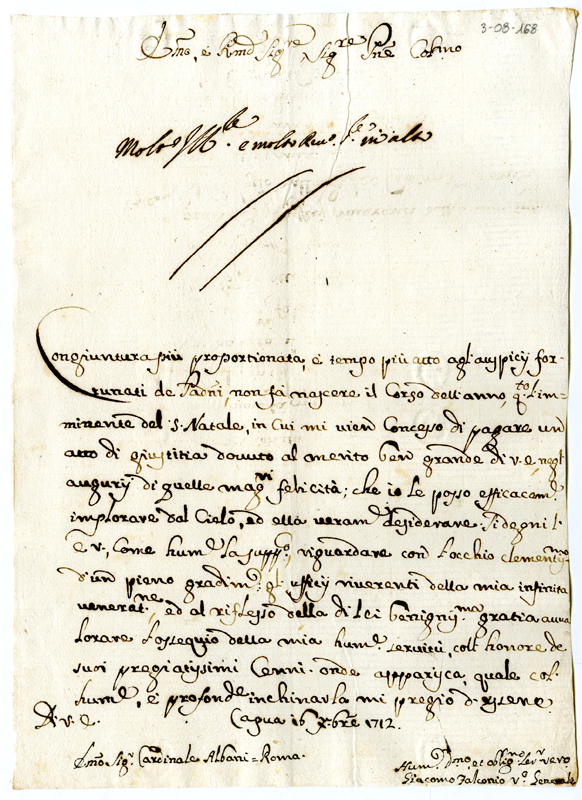 3-08-168
Emo, e Rmo Sigre Sigre Pne Colmo
Molto Illre e molto Reu.
Congiuntura più proportionata, e tempo più atto agl'auspicij for-
tunati de Padni non fà nascere il Corso dell'anno, qto l'im-
minente del S. Natale, in Cui mi vien Concesso di pagare un
atto di giustitia douuto al merito ben grande di V.E., negl'
augurij di quelle magri felicità; che io le posso efficacem.
implorare dal Cielo, ed ella veram. desiderare. Si degni l'
E.V., Come humte la suppco, riguardare con l'occhio clementmo
d'un pieno gradim.to gl'ufficij riuerenti della mia infinita
veneratne, ed al riflesso della di lei benignma gratia auua
lorare l'ossequio della mia hume seruitù, coll'honore de
suoi pregiatissimi Cenni. onde apparisca, quale col
humte, e profonde inchinarla mi pregio d'essere
D.V.E. Capua 16 Xbre 1712.
Emo Sigr Cardinale Albani = Roma.
Hum. Dmo, et obligmo Ser. vero
Giacomo Falconio Vo Generale